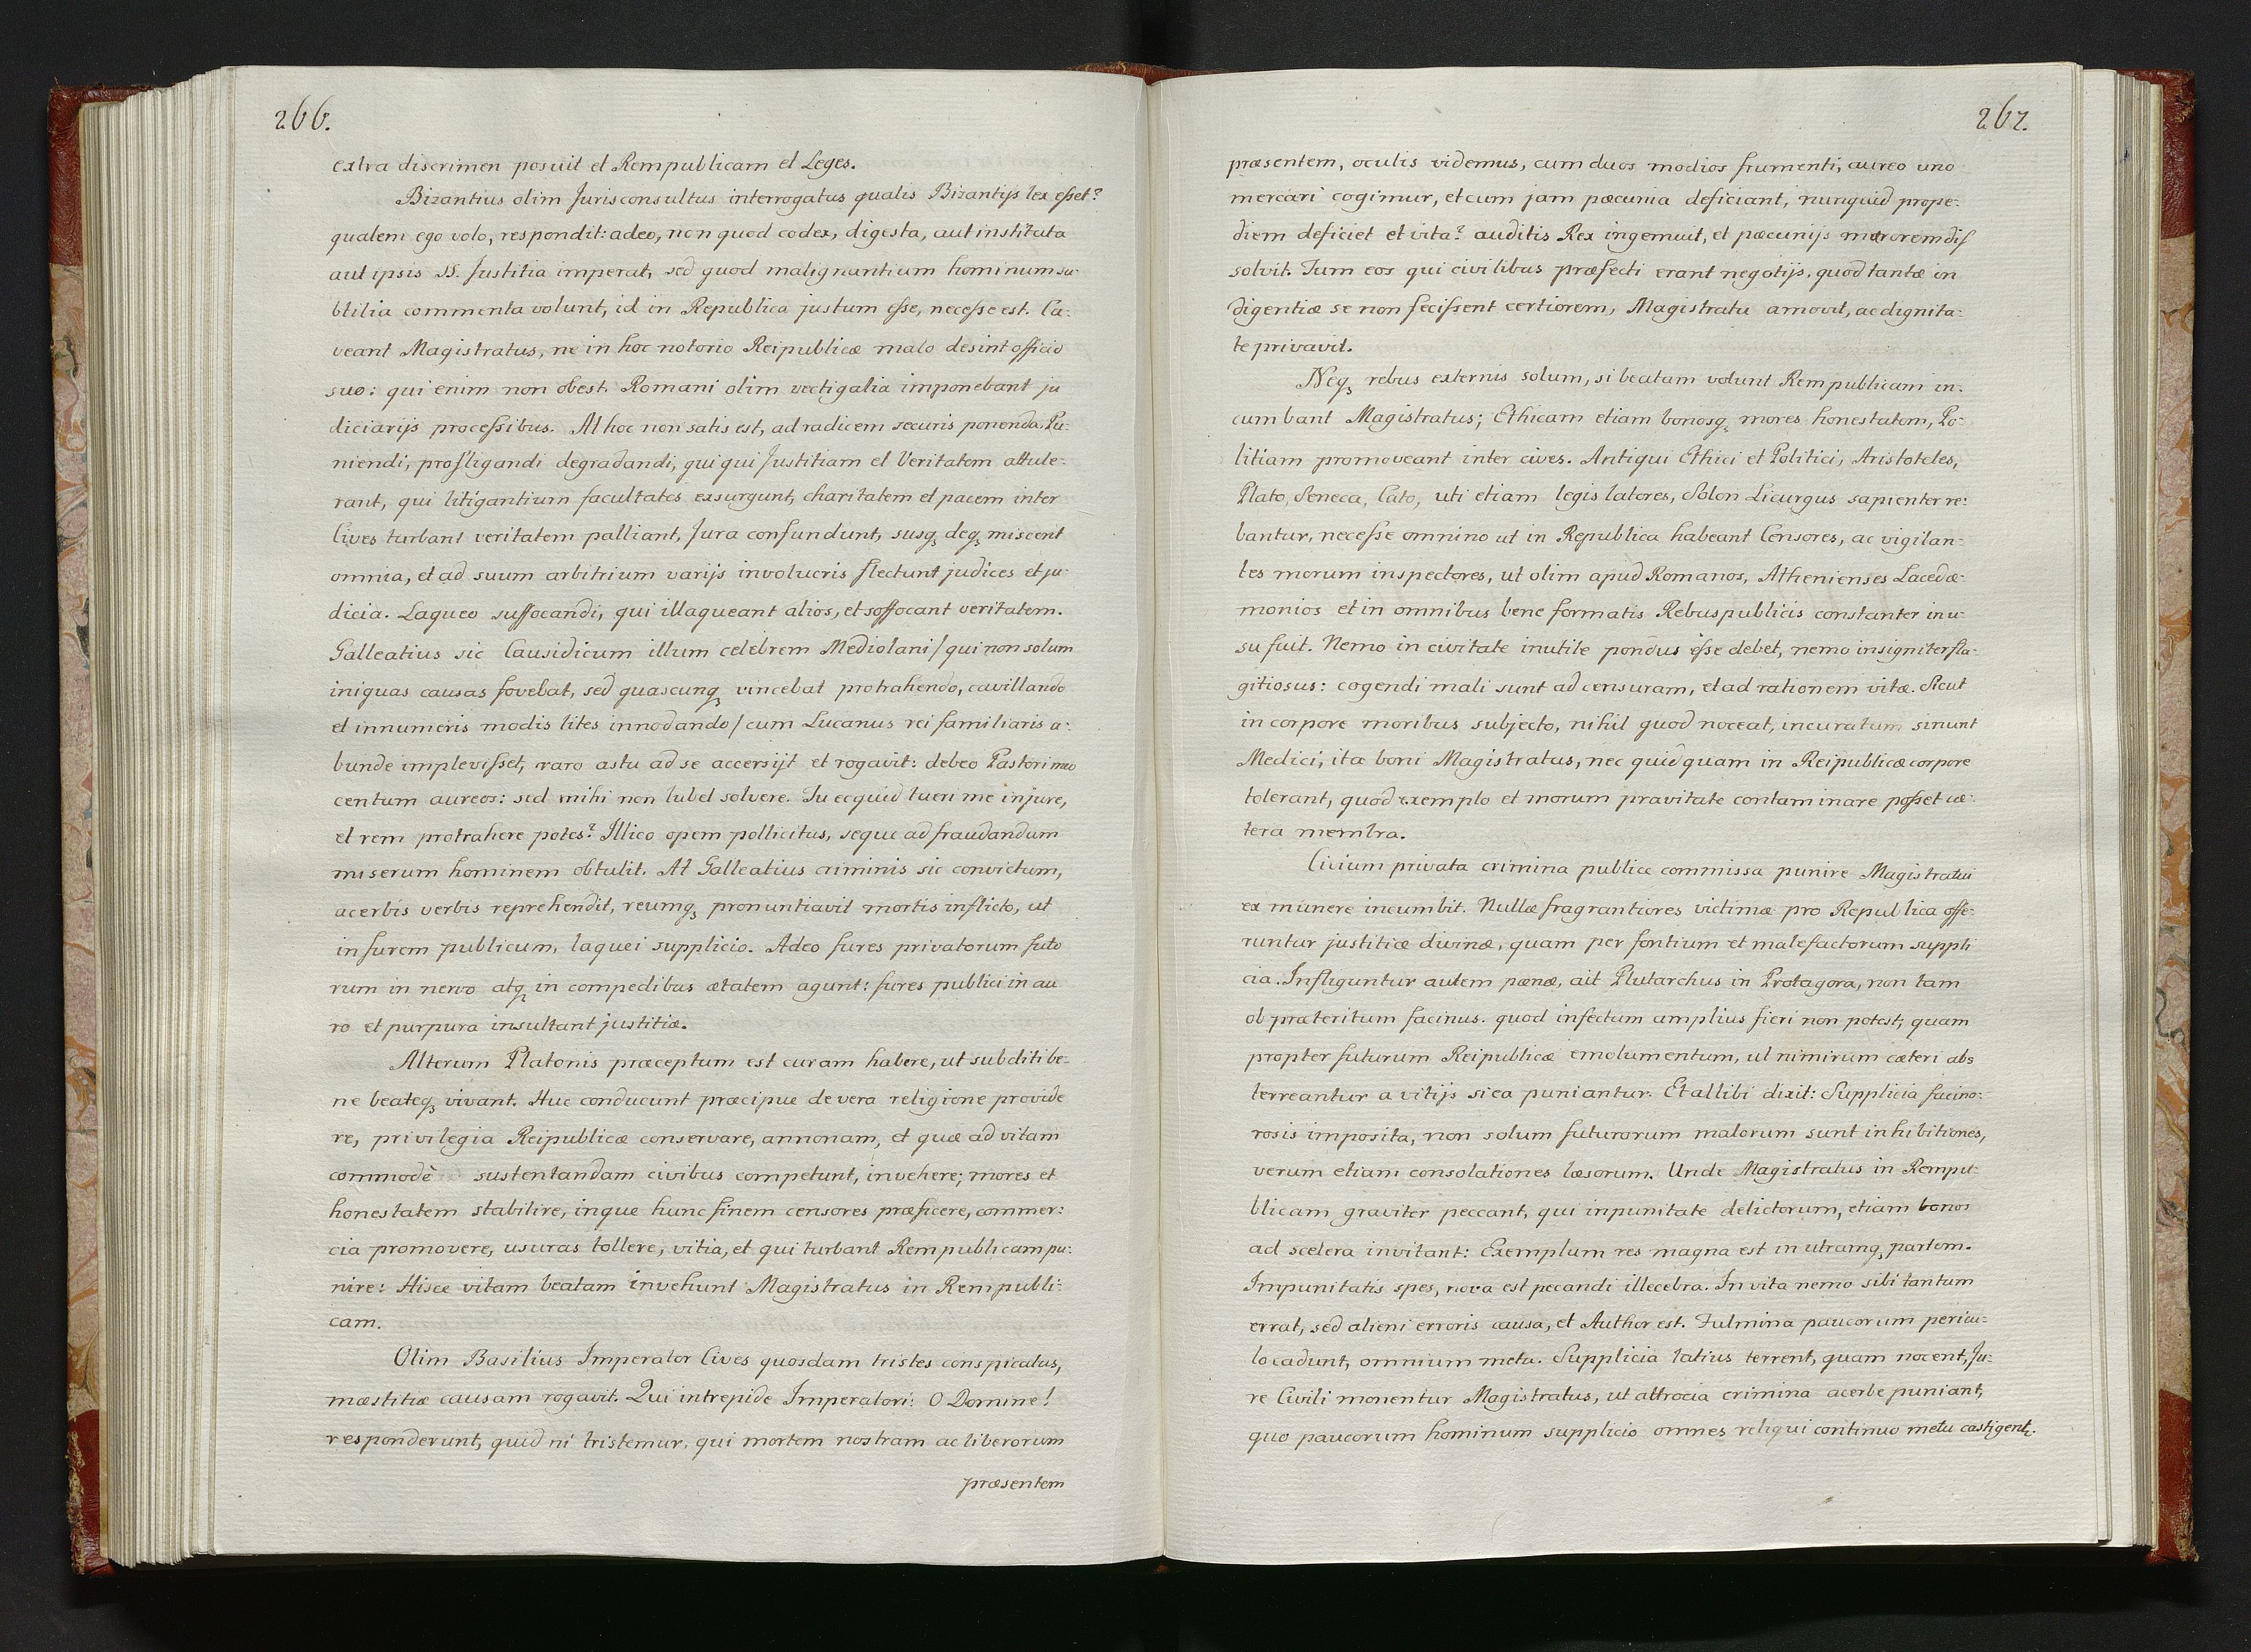 266.
extra discrimen posuit et Rempublicam et Leges.
Bizantius olim Jurisconsultus interrogatus qualis Bizantijs lex esset?
qualem ego volo, respondit: adeo, non quod codex, digesta, aut instituta
aut ipsis SS. Justitia imperat, sed quod malignantium hominum su-
btilia commenta volunt, id in Republica justum esse, necesse est. Ca:
veant Magistratus, ne in hoc notorio Reipublicæ malo desint officio
suo: qui enim non obest. Romani olim vectigalia imponebant ju
diciarijs processibus. At hoc non satis est, ad radicem securis ponenda. Pu:
niendi, profligandi degradandi, qui qui Justitiam et Veritatem attule:
rant, qui litigantium facultates exsurgunt, charitatem et pacem inter
Cives turbant veritatem palliant, Jura confundunt, susq, deq, miscent
omnia, et ad suum arbitrium varijs involucris flectunt judices et ju:
dicia. Laqueo suffocandi, qui illaqueant alios, et soffocant veritatem.
Galleatius sic Causidicum illum celebrem Mediolani / qui non solum
iniquas causas fovebat, sed quascunq, vincebat protrahendo, cavillando
et innumeris modis lites innodando / cum Lucanus rei familiaris a:
bunde implevisset, raro astu ad se accersijt et rogavit: debeo Pastori meo
centum aureos: sed mihi non lubet solvere. Tu ecquid tueri me in jure,
et rem protrahere potes? Illico opem pollicitus, seque ad fraudandum
miserum hominem obtulit. At Galleatius criminis sic convictum,
acerbis verbis reprehendit, reumq, pronuntiavit mortis inflicto, ut
in furem publicum, laquei supplicio. Adeo fures privatorum futo
rum in nervo atq, in compedibus ætatem agunt: fures publici in au
ro et purpura insultant justitiæ.
Alterum Platonis præceptum est curam habere, ut subditi be:
ne beateq, vivant. Huc conducunt præcipue de vera religione provide
re, privilegia Reipublicæ conservare, annonam, et quæ ad vitam
commodè sustentandam civibus competunt, invehere; mores et
honestatem stabilire, inque hunc finem censores præficere, commer:
cia promovere, usuras tollere, vitia, et qui turbant Rempublicam pu:
nire: Hisce vitam beatam invehunt Magistratus in Rempubli:
cam.
Olim Basilius Imperator Cives quosdam tristes conspicatus,
mæstitiæ causam rogavit. Qui intrepide Imperatori: O Domine!
responderunt, quid ni tristemur, qui mortem nostram ac liberorum
præsentem
267.
præsentem, oculis videmus, cum duos modios frumenti, aureo uno
mercari cogimur, et cum jam pæcunia deficiant, nunquid prope:
diem deficiet et vita? auditis Rex ingemuit, et pæcunijs mærorem dis
solvit. Tum eos qui civilibus præfecti erant negotijs, quod tantæ in
digentiæ se non fecissent certiorem, Magistratu amovit, ac dignita:
te privavit.
Neq, rebus externis solum, si beatam volunt Rempublicam in:
cumbant Magistratus; Ethicam etiam bonosq, mores honestatem, Po:
litiam promoveant inter cives. Antiqui Ethici et Politici, Aristoteles,
Plato, Seneca, Cato, uti etiam legis latores, Solon Licurgus sapienter re:
bantur, necesse omnino ut in Republica habeant Censores, ac vigilan:
tes morum inspectores, ut olim apud Romanos, Athenienses Lacedæ:
monios et in omnibus bene formatis Rebuspublicis constanter in u:
su fuit. Nemo in civitate inutile pondus esse debet, nemo insigniter fla:
gitiosus: cogendi mali sunt ad censuram, et ad rationem vitæ. Sicut
in corpore moribus subjecto, nihil quod noceat, incuratum sinunt
Medici, ita boni Magistratus, nec quidquam in Reipublicæ corpore
tolerant, quod exemplo et morum pravitate contaminare posset cæ:
tera membra.
Civium privata crimina publice commissa punire Magistratui
ex munere incumbit. Nullæ fragrantiores victimæ pro Republica offe:
runtur justitiæ divinæ, quam per fontium et malefactorum suppli
cia. Infliguntur autem pænæ, ait Plutarchus in Protagora, non tam
ob præteritum facinus. quod infectum amplius fieri non potest, quam
propter futurum Reipublicæ emolumentum, ut nimirum cæteri abs
terreantur a vitijs si ea puniantur. Et allibi dixit: Supplicia facino:
rosis imposita, non solum futurorum malorum sunt inhibitiones,
verum etiam consolationes læsorum. Unde Magistratus in Rempu:
blicam graviter peccant, qui inpunitate delictorum, etiam bonos
ad scelera invitant: Exemplum res magna est in utramq, partem.
Impunitatis spes, nova est pecandi illecebra. In vita nemo sibi tantum
errat, sed alieni erroris causa, et Author est. Fulmina paucorum pericu:
lo cadunt, omnium metu. Supplicia latius terrent, quam nocent, Ju:
re Civili monentur Magistratus, ut attrocia crimina acerbe puniant,
quo paucorum hominum supplicio omnes reliqui continuo metu castigent.